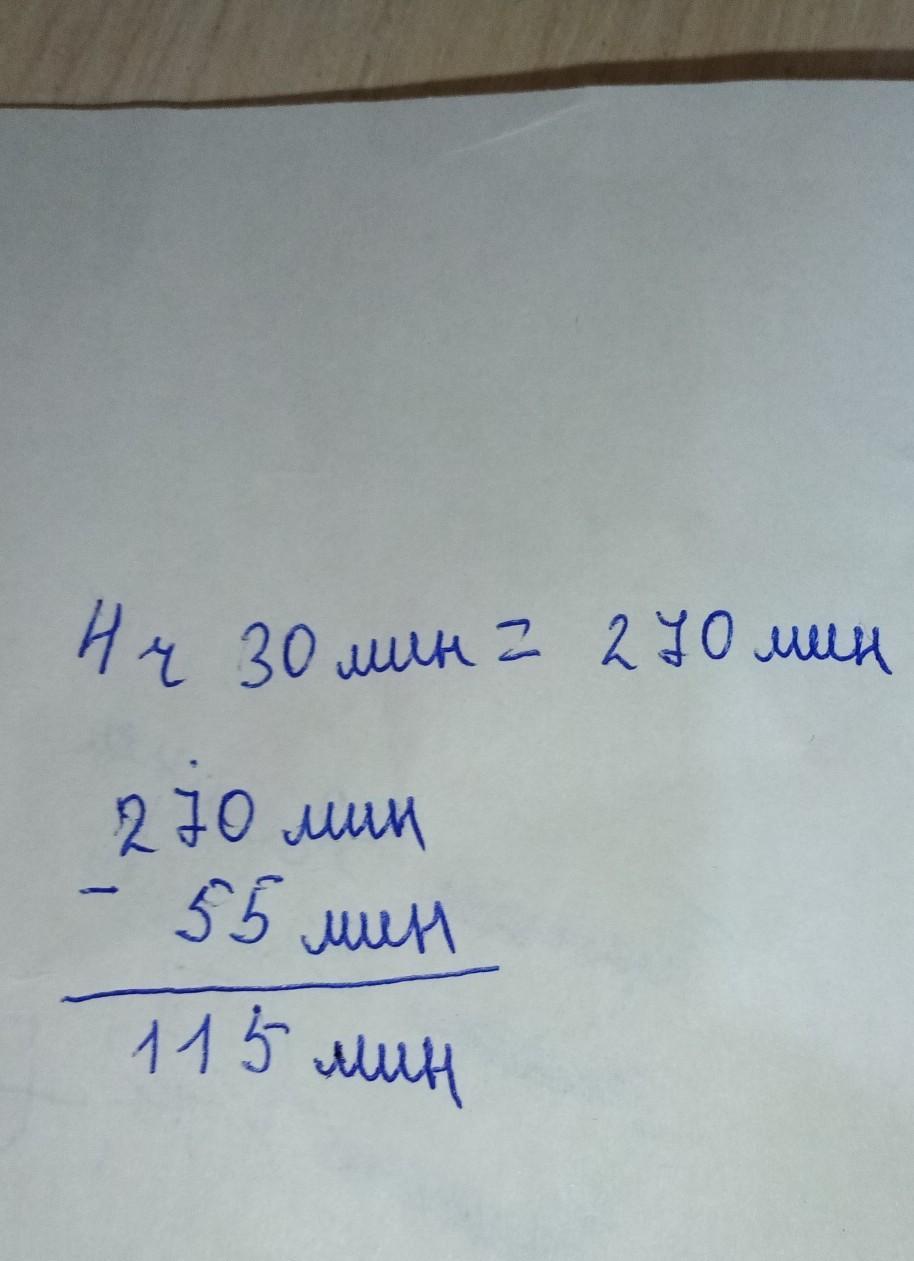 4 ч 30 мин = 270 мин
270 мин
- 55 мин
115 мин